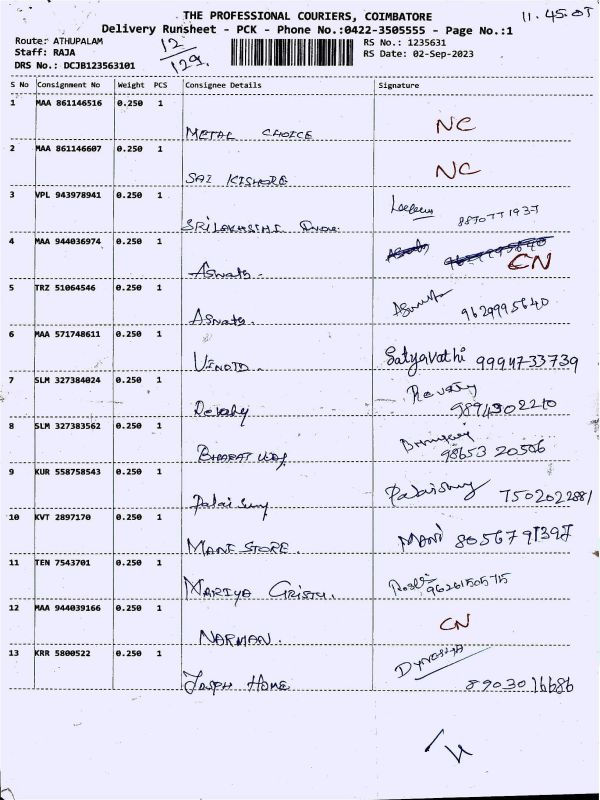 THE PROFESSIONAL COURIERS, COIMBATORE
11.45.05
Delivery Runsheet - PCK - Phone No.:0422-3505555 - Page No.:1
Route: ATHUPALAM
12/129
RS No.: 1235631
Staff: RAJA
RS Date: 02-Sep-2023
DRS No.: DCJB123563101
S No Consignment No Weight PCS Consignee Details Signature
1 MAA 861146516 0.250 1
METAL CHOICE NC
2 MAA 861146607 0.250 1
SAI KISHORE NC
3 VPL 943978941 0.250 1
SRILAKSHMI 8870771937
4 MAA 944036974 0.250 1
Aswats. CN
5 TRZ 51064546 0.250 1
Aswats. 9629995640
6 MAA 571748611 0.250 1
VINOTD. Satyavathi 9994733739
7 SLM 327384024 0.250 1
Revathy Revathy
9894302210
8 SLM 327383562 0.250 1
BHARAT
98653 20506
9 KUR 558758543 0.250 1
Palaisamy Palaisamy 7502022881
10 KVT 2897170 0.250 1
MANI STORE. MANI 8056791397
11 TEN 7543701 0.250 1
MARIYA CRISTY. 96261505715
12 MAA 944039166 0.250 1
NARMAN. CN
13 KRR 5800522 0.250 1
JOSEPH HOME 8903016686